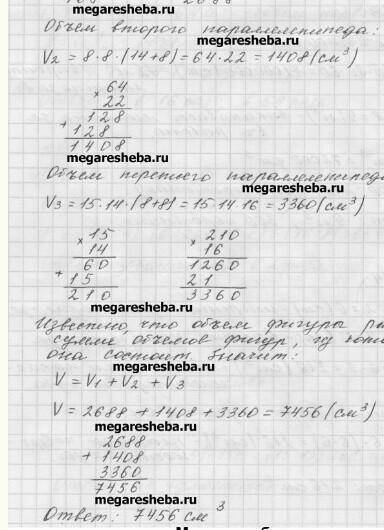 megaresheba.ru
Объем второго параллелепипеда:
megaresheba.ru
V2 = 8 · 8 · (14+8) = 64 · 22 = 1408 (см³)
× 64
22
128
+ 128
1408
megaresheba.ru
Объем третьего параллелепипеда
megaresheba.ru
V3 = 15 · 14 · (8+8) = 15 · 14 · 16 = 3360 (см³)
× 15 × 210
14 16
60 1260
+ 15 21
210 3360
megaresheba.ru
Известно, что объем фигуры
сумме объемов фигур, из
megaresheba.ru
она состоит. Значит:
V = V1 + V2 + V3
megaresheba.ru
V = 2688 + 1408 + 3360 = 7456 (см³)
megaresheba.ru
2688
+ 1408
3360
7456
megaresheba.ru
Ответ: 7456 см³